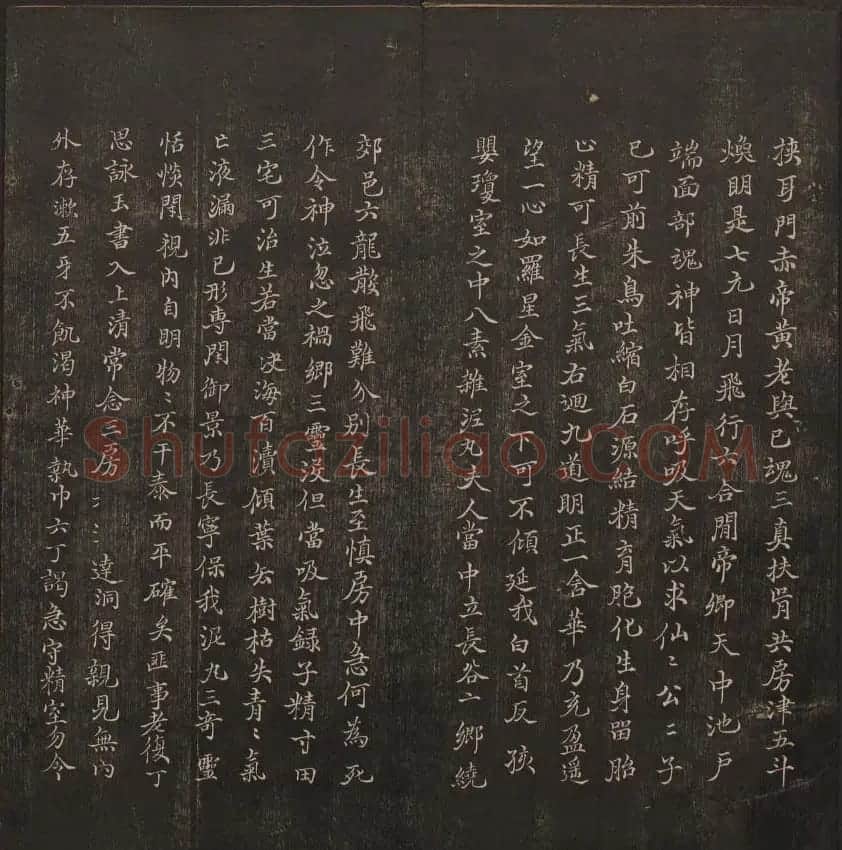 挾耳門赤帝黄老與己魂三真扶胥共房津五斗
煥明是七元日月飛行六合間帝鄉天中池戸
端面部魂神皆相存呼吸天氣以求仙〻公〻子
已可前朱鳥吐縮白石源結精育胞化生身留胎
止精可長生三氣右迴九道明正一含華乃充盈遥
望一心如羅星金室之下可不傾延我白首反孩
嬰瓊室之中八素集泥丸夫人當中立長谷二鄉繞
郊邑六龍散飛難分别長生至慎房中急何為死
作令神泣忽之禍鄉三靈没但當吸氣録子精寸田
三宅可治生若當决海百瀆傾葉去樹枯失青〻氣
亡液漏非已形専閉御景乃長寧保我泥丸三奇靈
恬惔閉視内自明物〻不干泰而平確矣匪事老復丁
思詠玉書入上清常念三房達洞得視見無内
外存漱五牙不飢渴神華執巾六丁謁急守精室勿令
Shufaziliao.COM